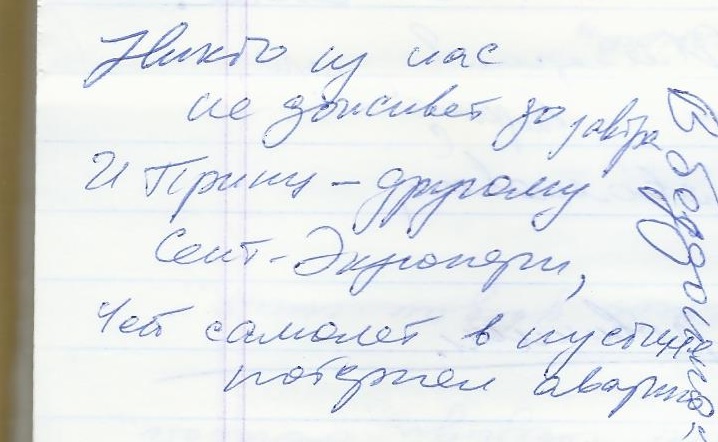 Никто из нас
не доживёт до завтра
И Принц – другому
Сент-Экзюпери,
Чей самолет в пустыне
потерпел аварию
В бездонно